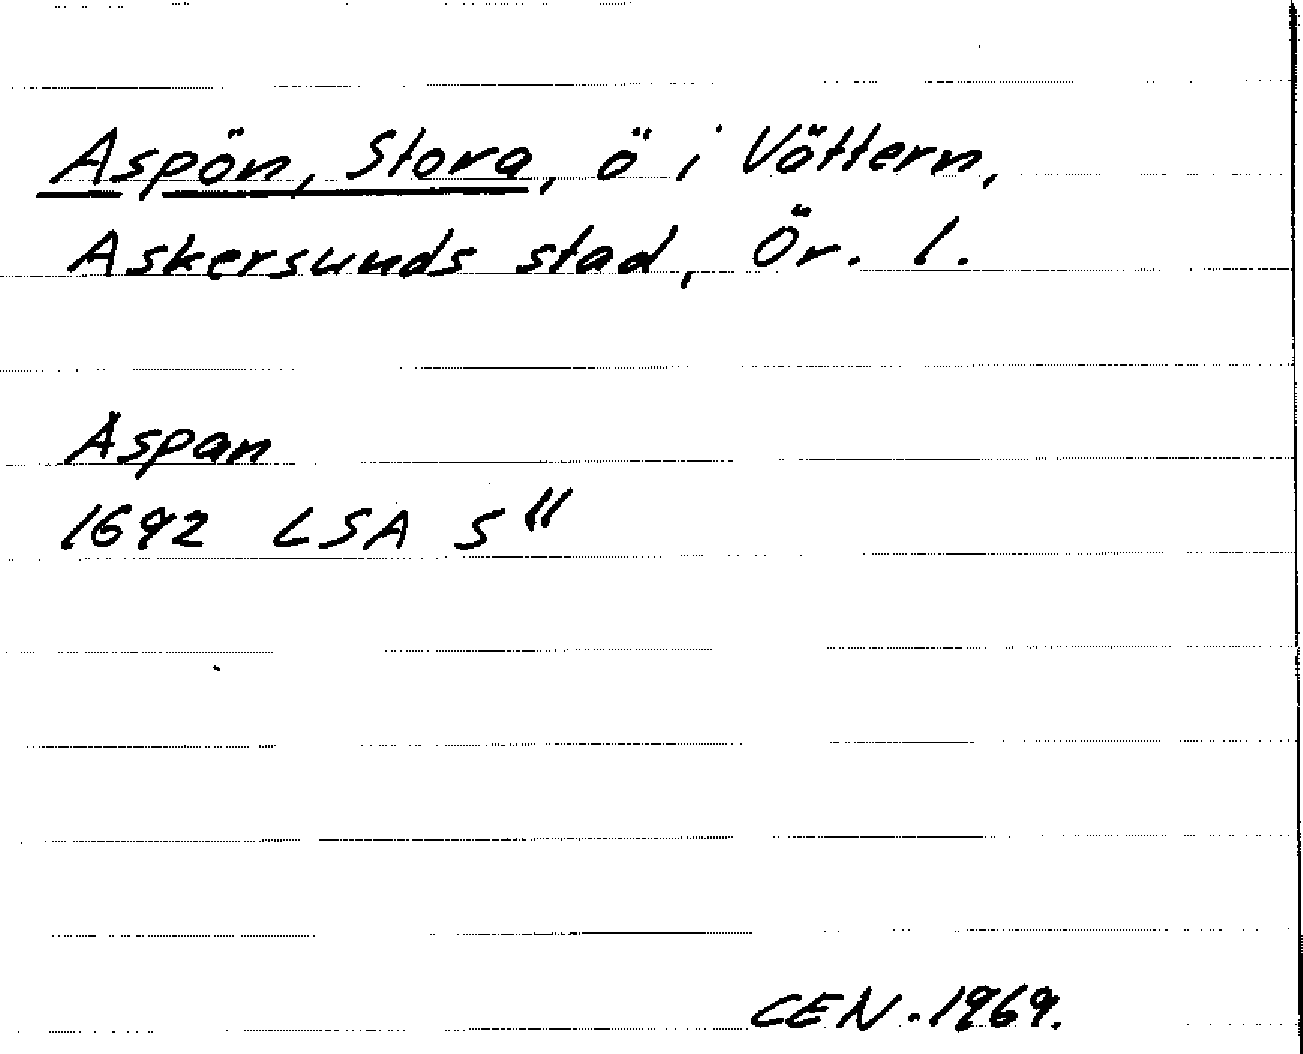 Aspön, Stora, ö i Vättern,
Askersunds stad, Ör. l.
Aspan
1692 LSA S"
CEN. 1969.